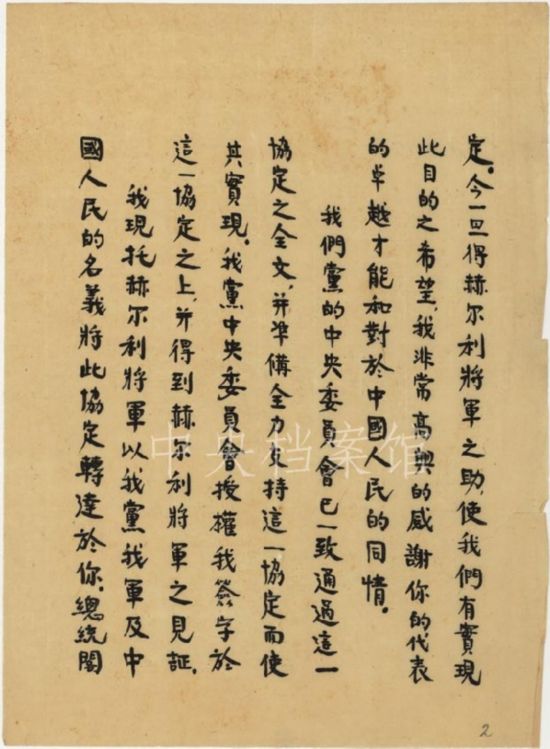 定。今一旦得赫尔利將軍之助，使我們有實現
此目的之希望，我非常高興的感謝你的代表
的卓越才能和對於中國人民的同情。
我們黨的中央委員會已一致通過這一
協定之全文，并準備全力支持這一協定而使
其實現。我黨中央委員會授權我簽字於
這一協定之上，并得到赫尔利將軍之見証。
我現托赫尔利將軍以我黨我軍及中
國人民的名義將此協定轉達於你。總統閣
中央档案馆
2